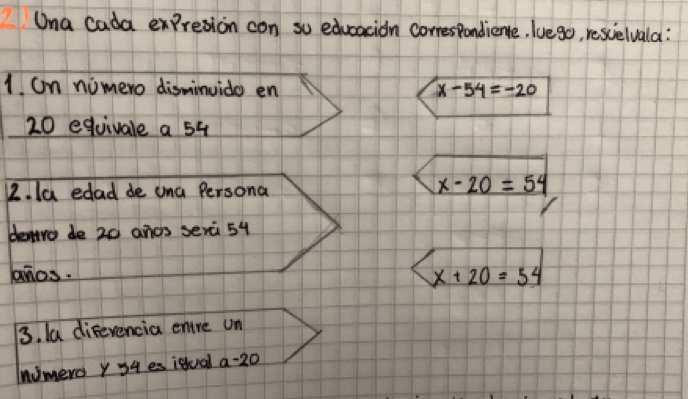 2) Una cada expresión con su educación correspondiente. luego, resuelvala:
1. Un número disminuido en
20 equivale a 54
x-54=-20
2. la edad de una Persona
dentro de 20 años será 54
años.
x-20=54
x+20=54
3. la diferencia entre un
número y 54 es igual a -20